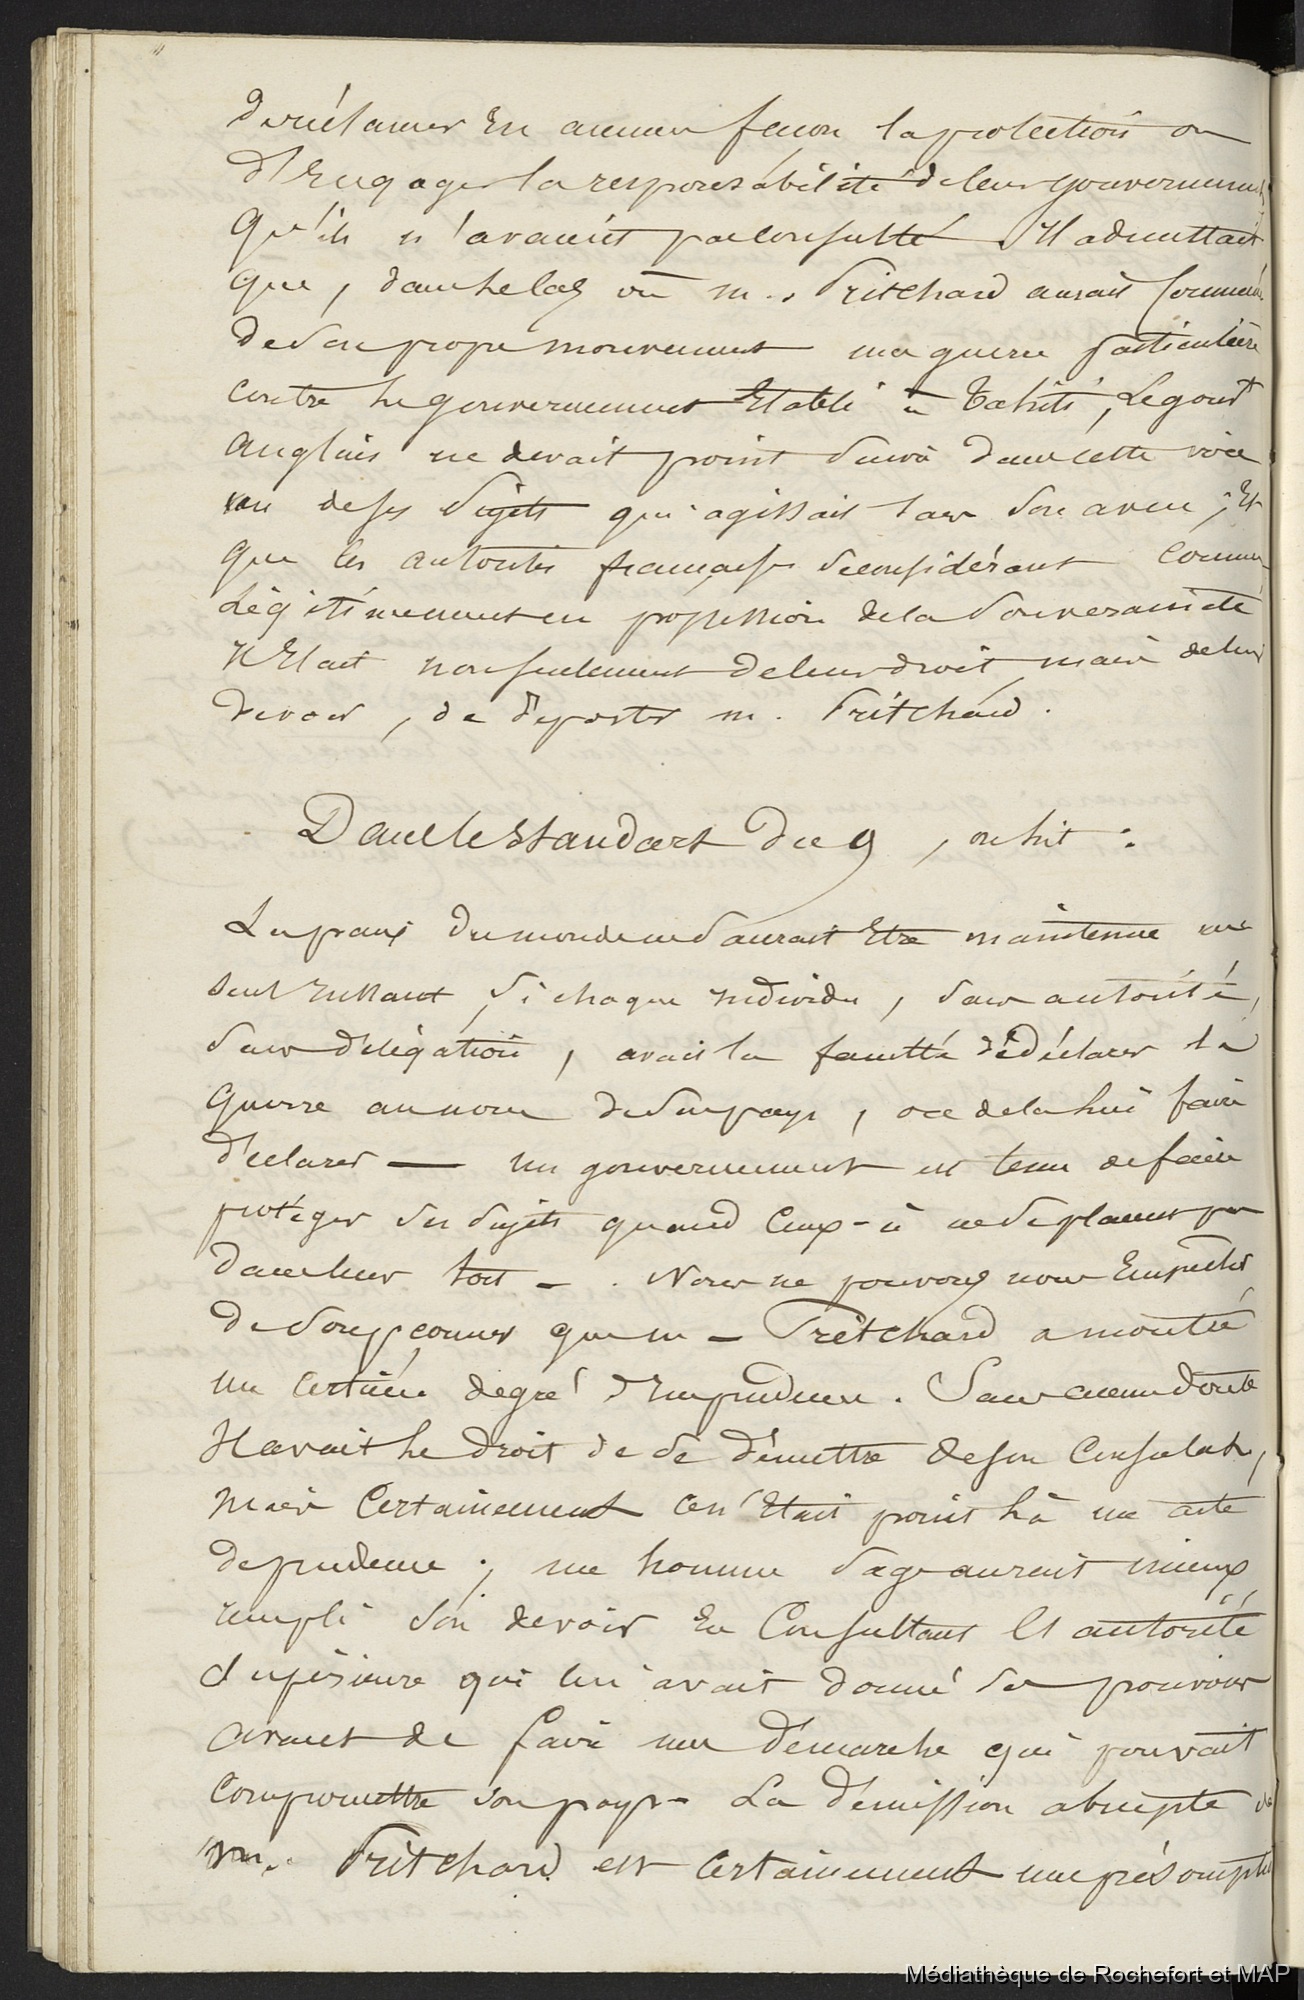 de réclamer En aucune façon la protection ou
d'Engager la responsabilité de leur gouvernement
Qu'ils n'avaient pas consulté. Il admettait
que, dans le cas où m. Pritchard aurait commencé
de son propre mouvement une guerre particulière
contre le gouvernement Etabli à Tahiti, Le gouvt
anglais ne devait point suivre dans cette voie
un de ses Sujets qui agissait sans son aveu ; Et
que les autorités françaises se considérant comme
Légitimement en possession de la Souveraineté
Il Etait non seulement de leur droit, mais de leur
devoir, de déporter m. Pritchard.
Dans le Standart du 9, on lit :
La paix du monde ne saurait Etre maintenue un
seul instant, Si chaque individu, sans autorité,
sans délégation, avait la faculté de déclarer la
Guerre au nom de son pays, ou de la lui faire
déclarer — un gouvernement est tenu de faire
protéger ses sujets quand Ceux-ci ne se placent pas
dans leur tort — . Nous ne pouvons nous Empêcher
de soupçonner que m — Pritchard a montré
un certain degré d'Imprudence. Sans aucun doute
Il avait le droit de se démettre de son Consulat,
mais Certainement ce n'Etait point là un acte
de prudence ; un homme sage aurait mieux
rempli son devoir En Consultant l'autorité
Supérieure qui lui avait donné ses pouvoirs
avant de faire une démarche qui pouvait
compromettre son pays — La démission abrupte de
m. Pritchard est certainement une présomption
Médiathèque de Rochefort et MAP